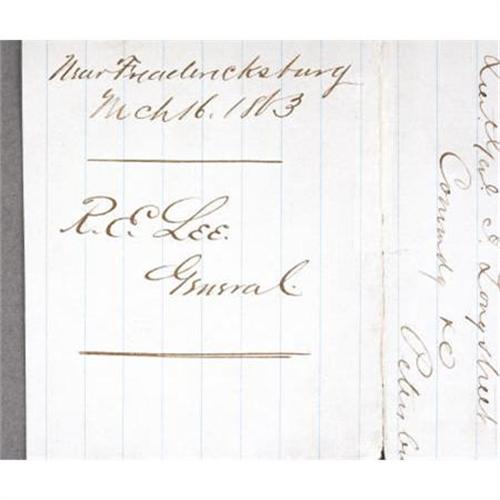 Near Fredericksburg
Mch 16. 1863
R. E. Lee.
General.
Lieut Gal. J. Longstreet
Comndg &C